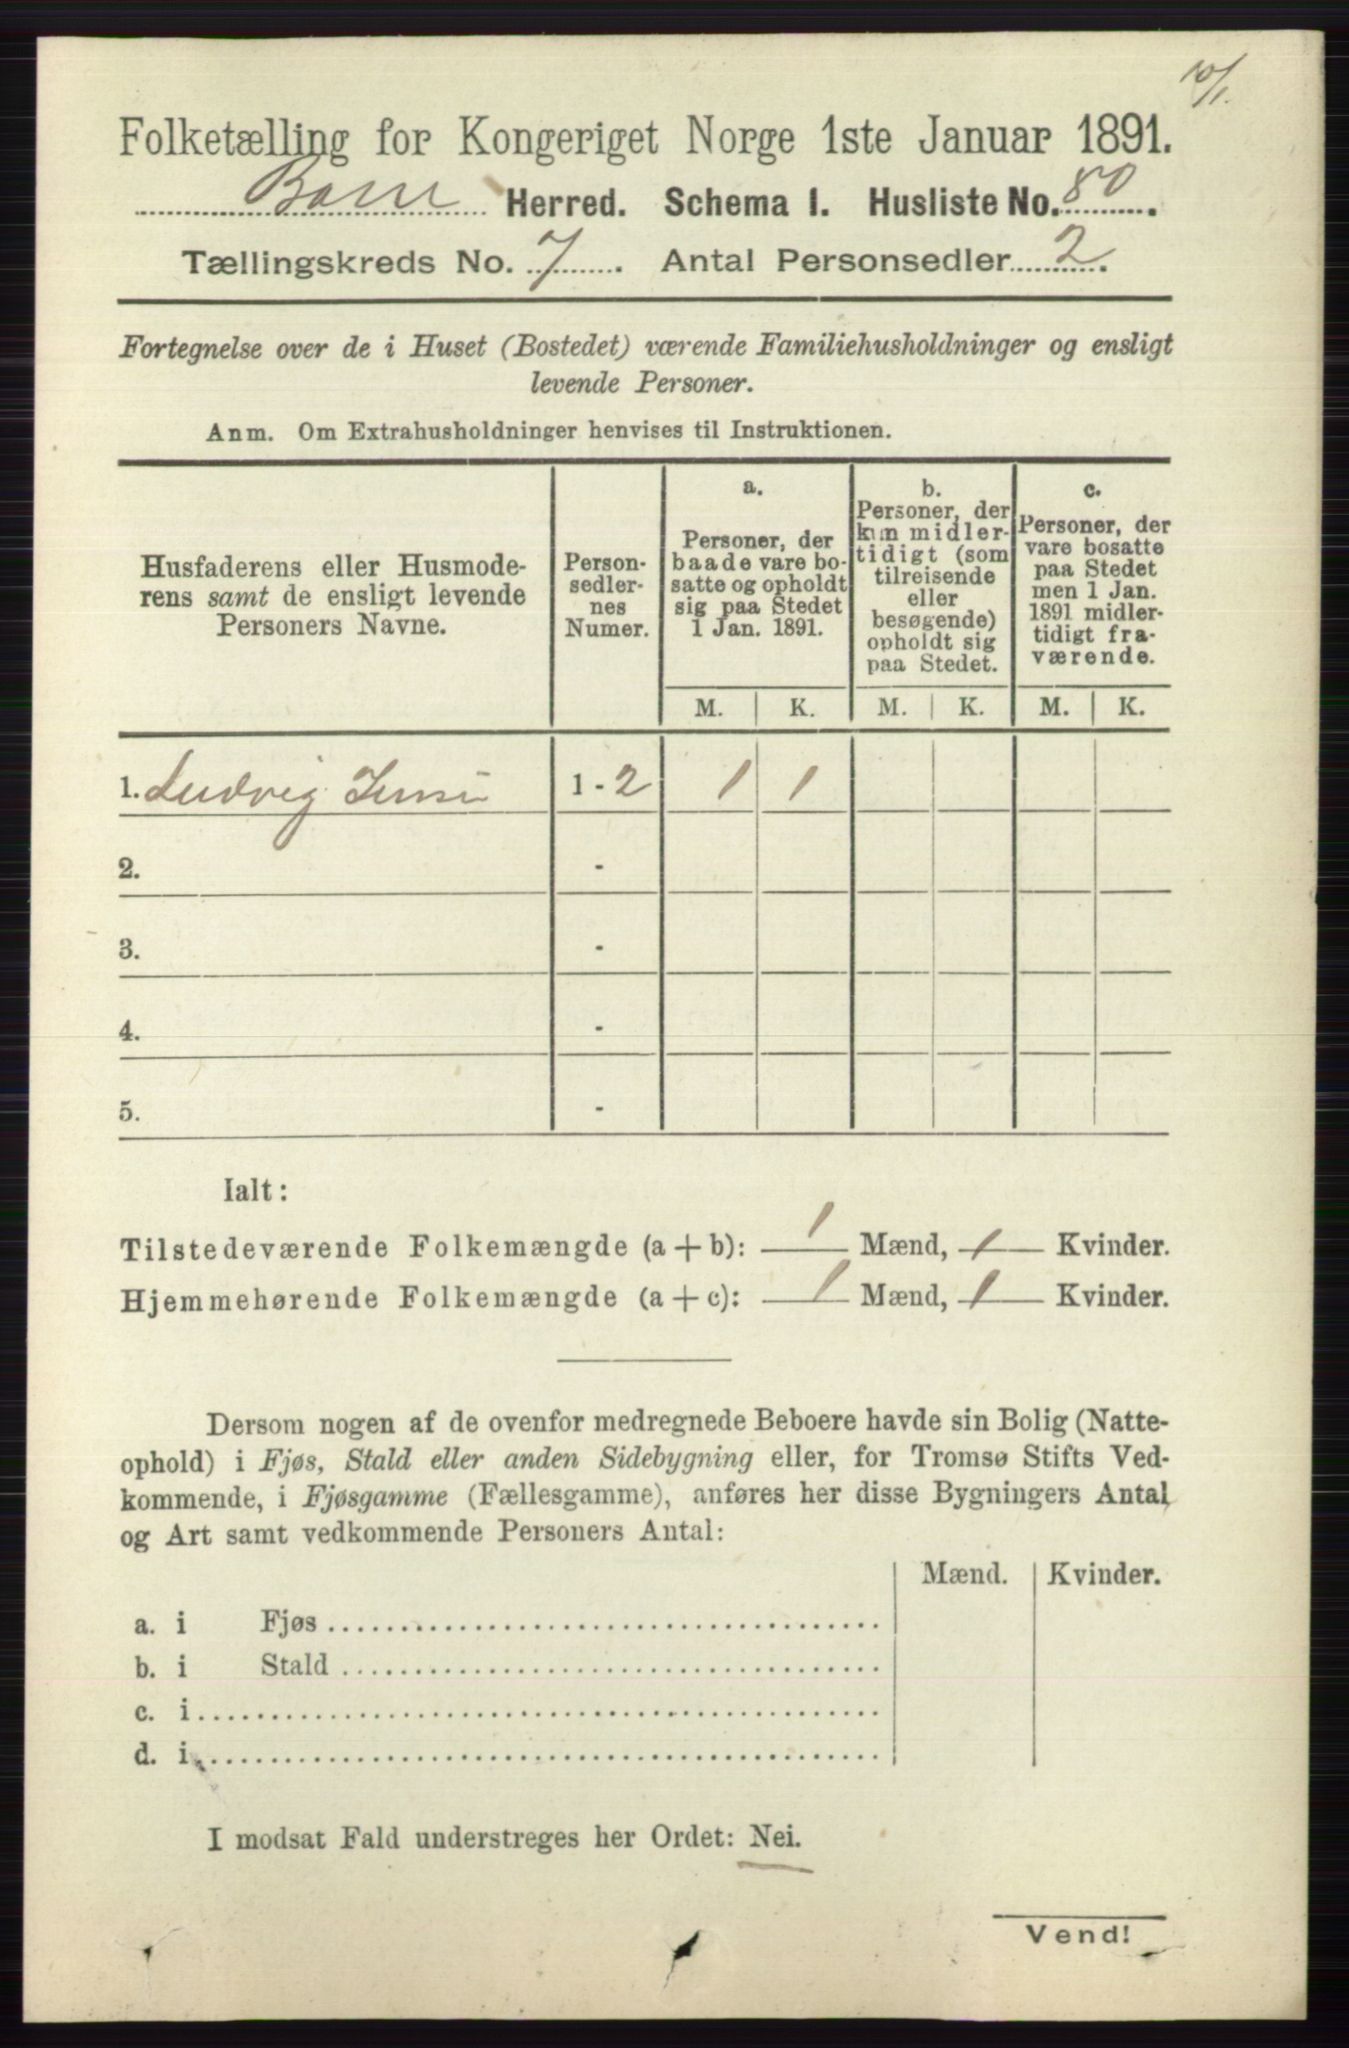 10/1.
Folketælling for Kongeriget Norge 1ste Januar 1891.
Herred. Schema I. Husliste No. 80.
Tællingskreds No. 7. Antal Personsedler 2.
Fortegnelse over de i Huset (Bostedet) værende Familiehusholdninger og ensligt
levende Personer.
Anm. Om Extrahusholdninger henvises til Instruktionen.
Husfaderens eller Husmode-
rens samt de ensligt levende
Personers Navne.
Person-
sedler-
nes
Numer.
a.
Personer, der
baade vare bo-
satte og opholdt
sig paa Stedet
1 Jan. 1891.
b.
Personer, der
kun midler-
tidigt (som
tilreisende
eller
besøgende)
opholdt sig
paa Stedet.
c.
Personer, der
vare bosatte
paa Stedet
men 1 Jan.
1891 midler-
tidigt fra-
værende.
M. K. M. K. M. K.
1. Ludvig 1 - 2 1 1
2. -
3. -
4. -
5. -
Ialt:
Tilstedeværende Folkemængde (a + b): 1 Mænd, 1 Kvinder.
Hjemmehørende Folkemængde (a + c): 1 Mænd, 1 Kvinder.
Dersom nogen af de ovenfor medregnede Beboere havde sin Bolig (Natte-
ophold) i Fjøs, Stald eller anden Sidebygning eller, for Tromsø Stifts Ved-
kommende, i Fjøsgamme (Fællesgamme), anføres her disse Bygningers Antal
og Art samt vedkommende Personers Antal:
Mænd. Kvinder.
a. i Fjøs
b. i Stald
c. i
d. i
I modsat Fald understreges her Ordet: Nei.
Vend!